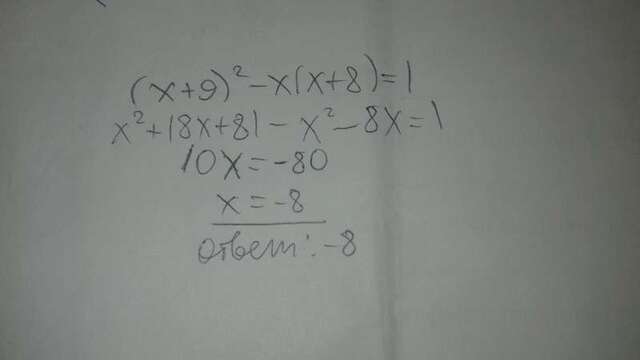 (x+9)²-x(x+8)=1
x²+18x+81-x²-8x=1
10x=-80
x=-8
ответ: -8